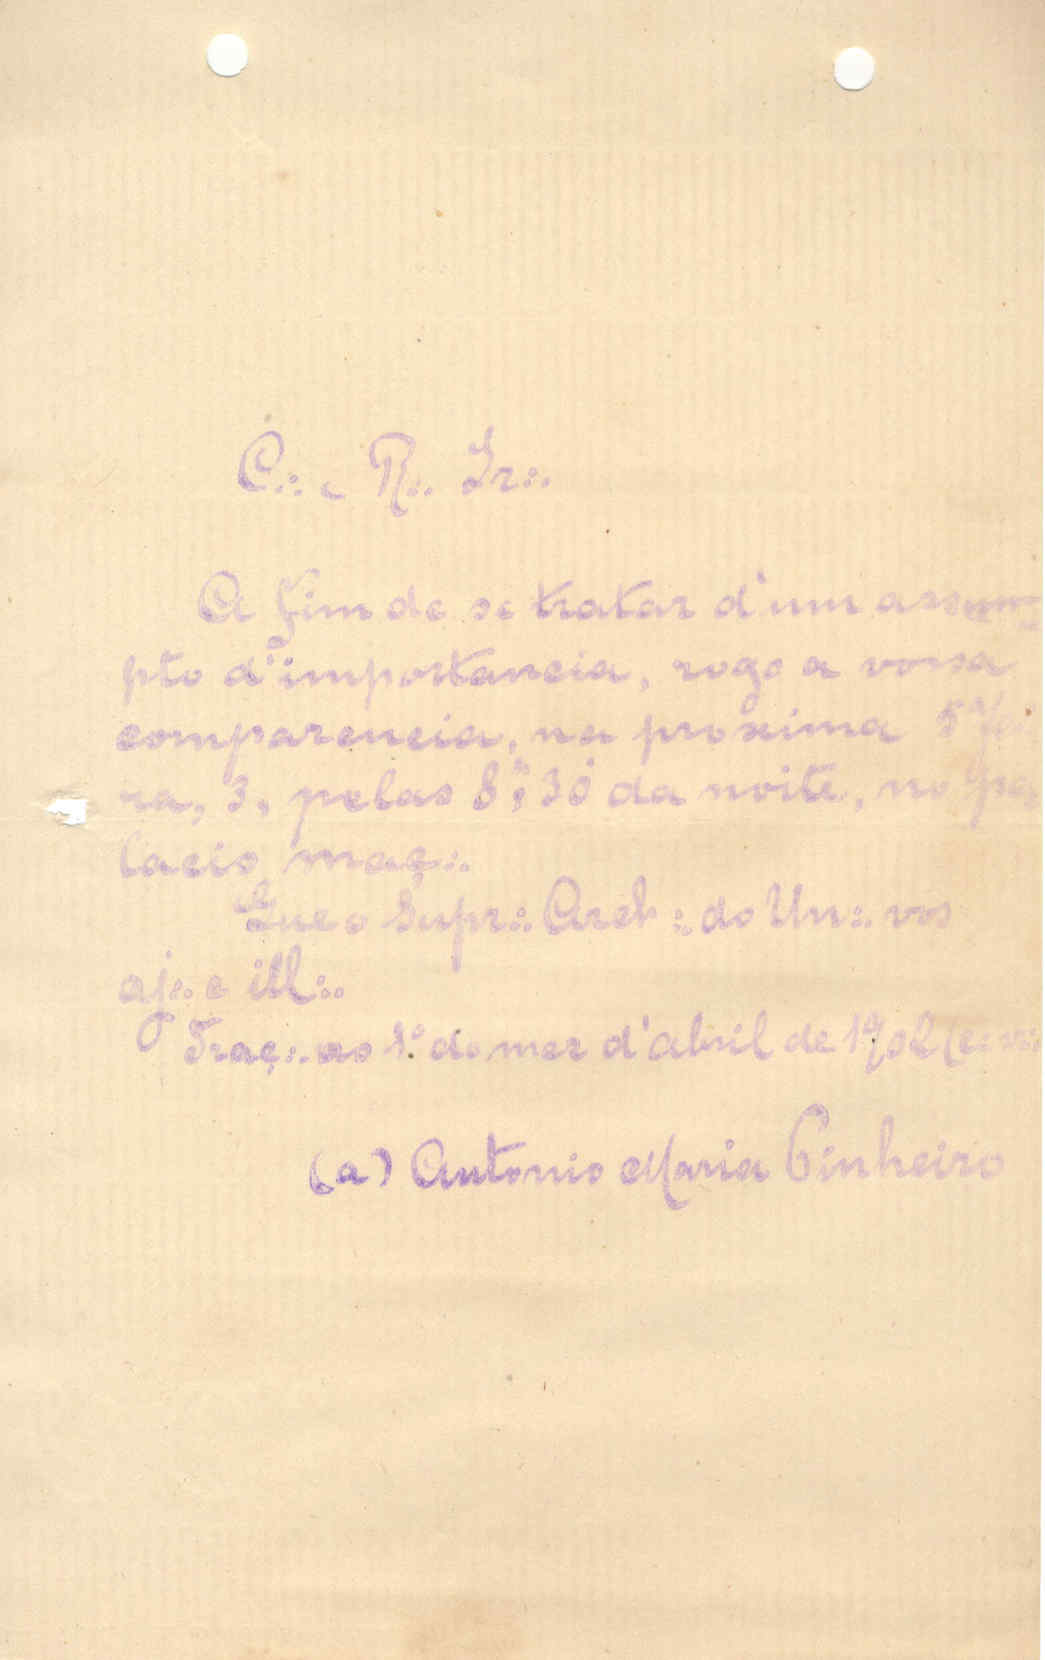 C∴ e R∴ Ir∴
A fim de se tratar d'um assum-
pto d'importancia, rogo a vossa
comparencia, na proxima 5ª fei
ra, 3, pelas 8 h, 30' da noite, no Pa
lacio maç∴
Que o Supr∴ Arch∴ do Un∴ vos
aj∴ e ill∴
Traç∴ ao 1º do mez d'abril de 1902 (e∴ v∴
(a) Antonio Maria Pinheiro